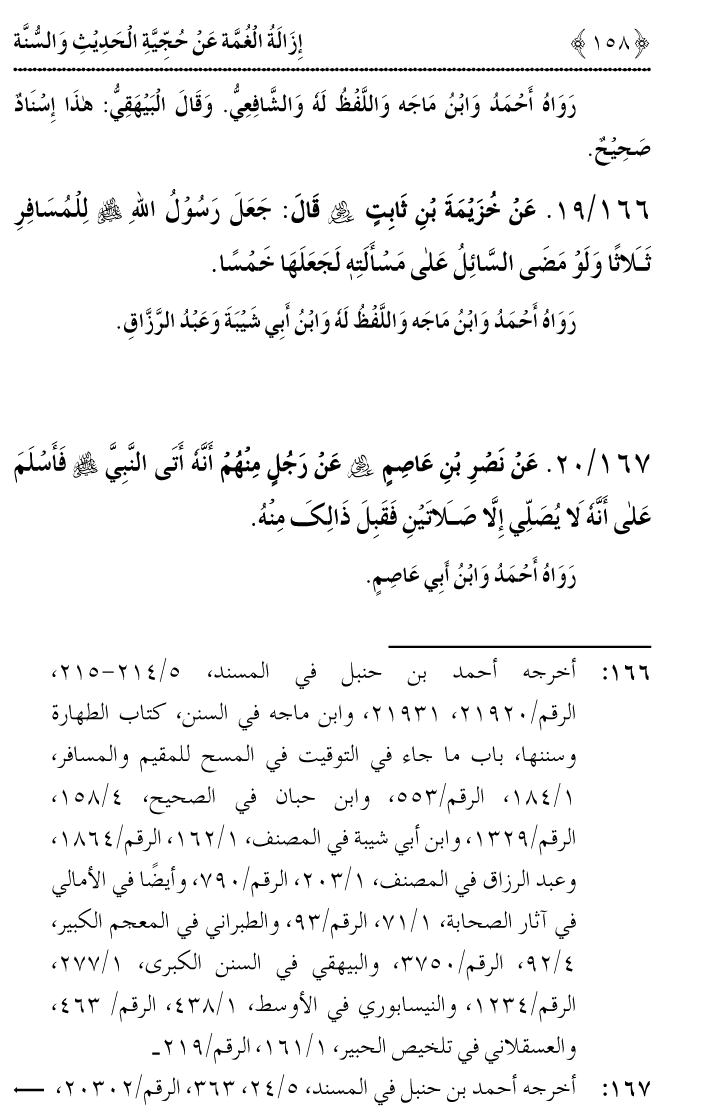 ﴿١٥٨﴾ إِزَالَةُ الْغُمَّة عَنْ حُجِّيَّةِ الْحَدِيْثِ وَالسُّنَّة
رَوَاهُ أَحْمَدُ وَابْنُ مَاجَه وَاللَّفْظُ لَهُ وَالشَّافِعِيُّ. وَقَالَ الْبَيْهَقِيُّ: هٰذَا إِسْنَادٌ
صَحِيْحٌ.
١٩/١٦٦. عَنْ خُزَيْمَةَ بْنِ ثَابِتٍ ؓ قَالَ: جَعَلَ رَسُوْلُ اللهِ ﷺ لِلْمُسَافِرِ
ثَلَاثًا وَلَوْ مَضَى السَّائِلُ عَلٰى مَسْأَلَتِهٖ لَجَعَلَهَا خَمْسًا.
رَوَاهُ أَحْمَدُ وَابْنُ مَاجَه وَاللَّفْظُ لَهُ وَابْنُ أَبِي شَيْبَةَ وَعَبْدُ الرَّزَّاقِ.
٢٠/١٦٧. عَنْ نَصْرِ بْنِ عَاصِمٍ ؓ عَنْ رَجُلٍ مِنْهُمْ أَنَّهُ أَتَى النَّبِيَّ ﷺ فَأَسْلَمَ
عَلٰى أَنَّهُ لَا يُصَلِّي إِلَّا صَلَاتَيْنِ فَقَبِلَ ذَالِکَ مِنْهُ.
رَوَاهُ أَحْمَدُ وَابْنُ أَبِي عَاصِمٍ.
١٦٦: أخرجه أحمد بن حنبل في المسند، ٥/٢١٤-٢١٥،
الرقم/٢١٩٢٠، ٢١٩٣١، وابن ماجه في السنن، كتاب الطهارة
وسننها، باب ما جاء في التوقيت في المسح للمقيم والمسافر،
١/١٨٤، الرقم/٥٥٣، وابن حبان في الصحيح، ٤/١٥٨،
الرقم/١٣٢٩، وابن أبي شيبة في المصنف، ١/١٦٢، الرقم/١٨٦٤،
وعبد الرزاق في المصنف، ١/٢٠٣، الرقم/٧٩٠، وأيضًا في الأمالي
في آثار الصحابة، ١/٧١، الرقم/٩٣، والطبراني في المعجم الكبير،
٤/٩٢، الرقم/٣٧٥٠، والبيهقي في السنن الكبرى، ١/٢٧٧،
الرقم/١٢٣٤، والنيسابوري في الأوسط، ١/٤٣٨، الرقم/ ٤٦٣،
والعسقلاني في تلخيص الحبير، ١/١٦١، الرقم/٢١٩ـ
١٦٧: أخرجه أحمد بن حنبل في المسند، ٥/٢٤، ٣٦٣، الرقم/٢٠٣٠٢، ←